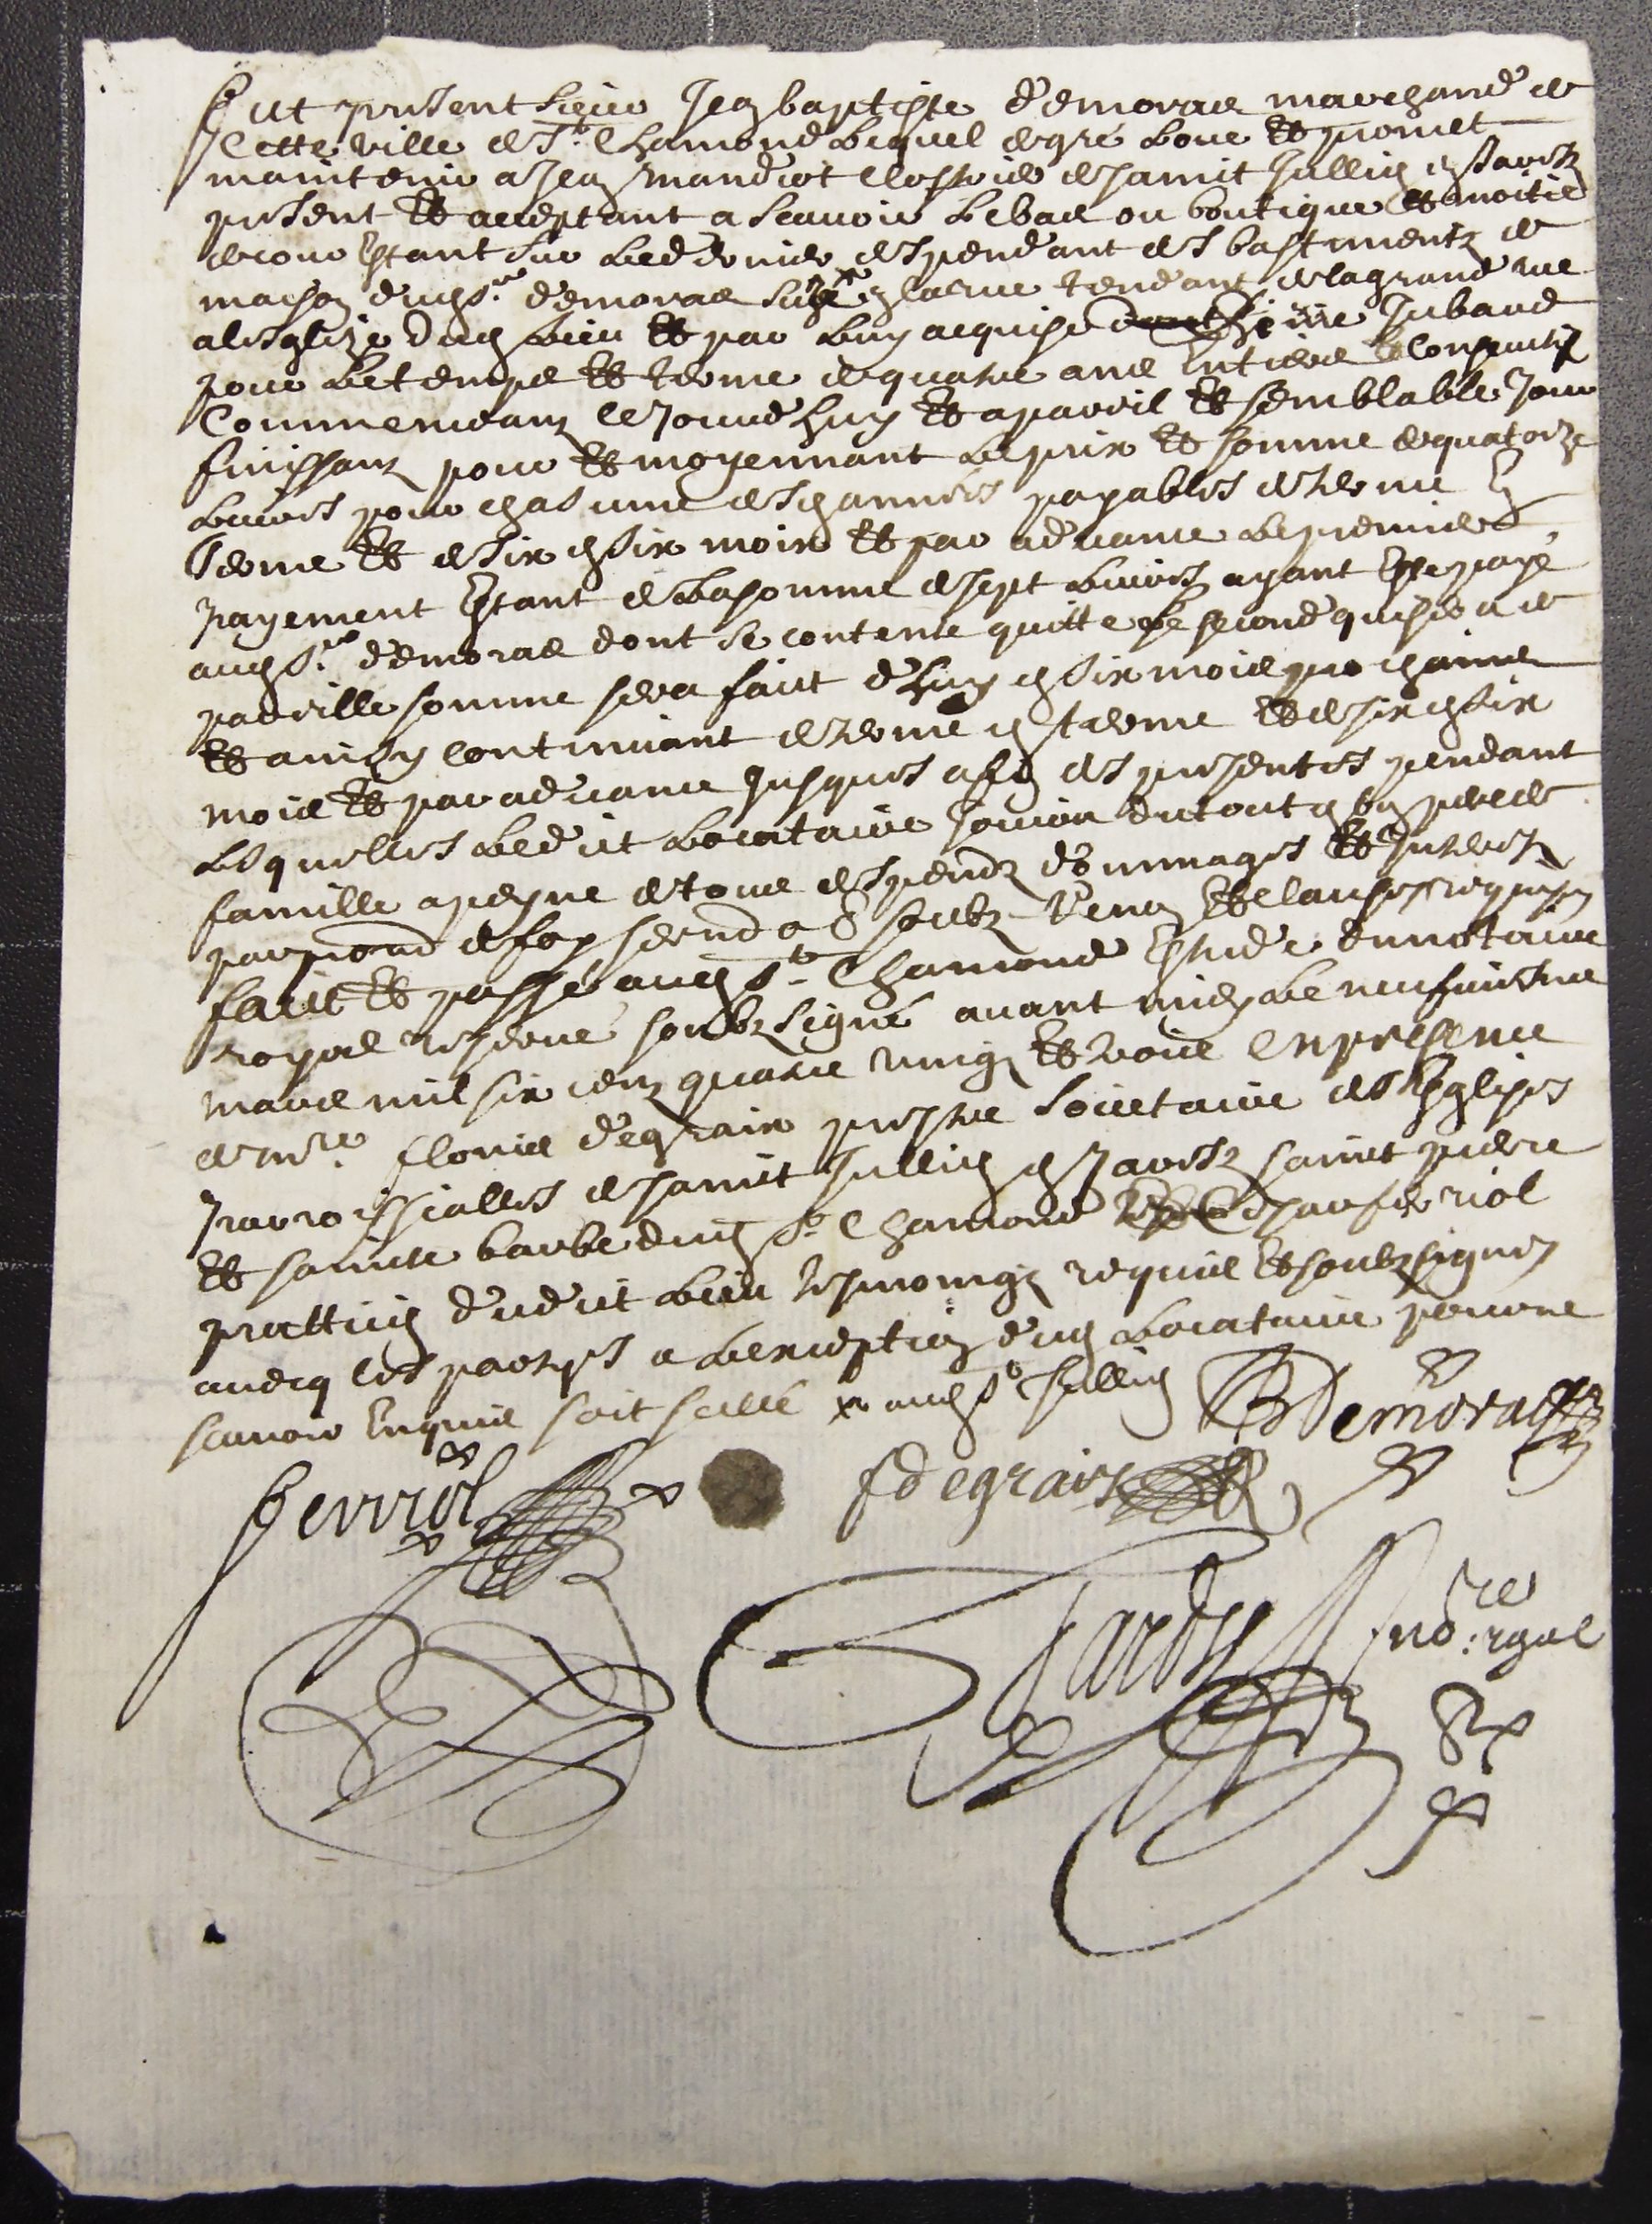 Fut present sieur Jean baptiste demoras marchand de
Cette ville de St. Chamond lequel de gré loue et promet
maintenir a Jean mandiot clostrier de saint Jullien en Jarestz
present et acceptant a scavoir le bas ou boutique et moitié
de cour estant sur le dernier despendant des bastimentz de
maison dudit sr. demoras en la rue tendant de la grand rue
a lesglize dudit lieu et par luy acquise Jubaud
pour le temps et terme de quatre ans entiers et consecutifz
Commenceans ce Jourdhuy et a pareil et semblable Jour
finissans pour et moyennant le prix et somme de quatorze
livres pour chascune des annees payables de terme en
terme et de six en six mois et par advance le premier
payement estant de la somme de sept livres ayant esté payé
audit sr. demoras dont se contente quitte le second qui sera de
pareille somme sera fait dhuy en six mois prochains
et ainsy continuant de terme en terme et de six en six
mois et par advance Jusques a fin des presentes pendant
lesquelles ledit locataire Jouira du tout en bon pere de
famille a peyne de tous despens dommages et Interestz
par foy serment soubz renon et clauses requises
fait et passé audit St. Chamond estude du notaire
royal reservé soubzsigné avant midy le neufviesme
mars mil six cens quatre vingt et trois en presence
de mre. floris degraix prestre societaire des Esglises
parroissialles de saint Jullien en Jarestz saint pierre
et sainte barbe dudit St. Chamond ferriol
pratticien dudit lieu tesmoings requis et soubzsignes
avecq les parties a lexception dudit locataire pour ne
scavoir enquis soit scellé audit St Jullien
BDemoras
ferriol
fdegraix
Jardy nore. rgal